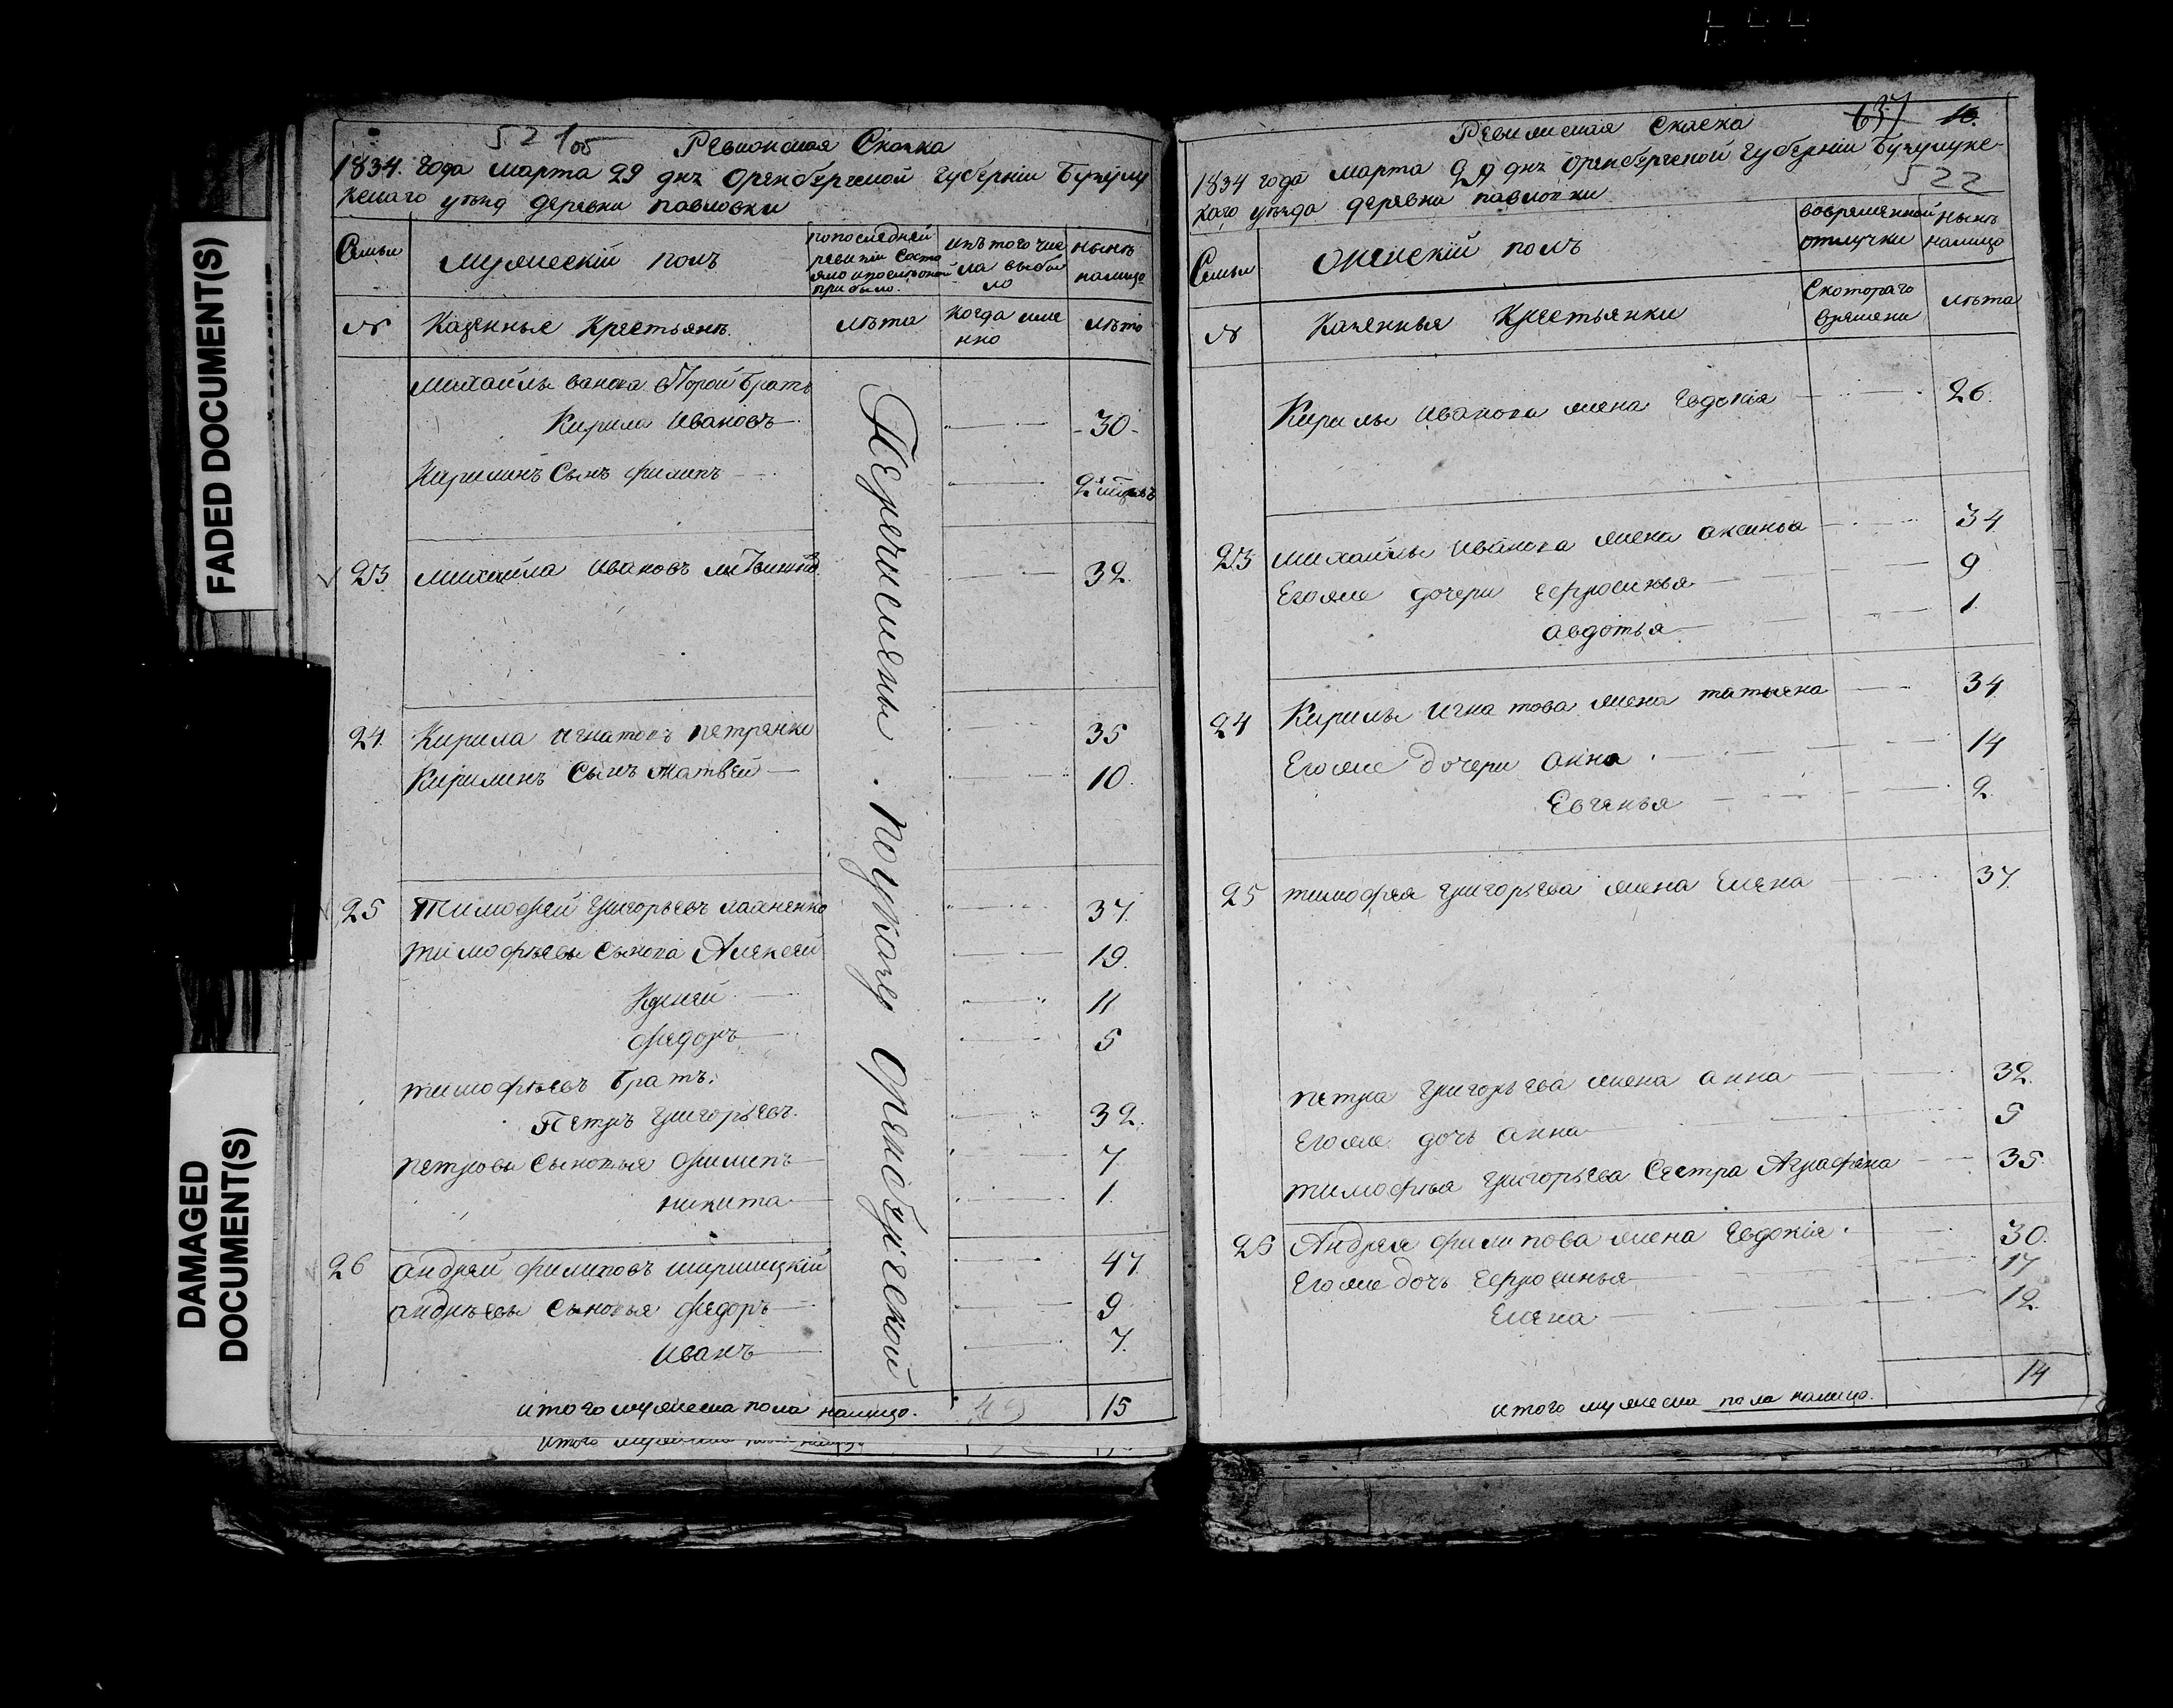 FADED DOCUMENT(S)
DAMAGED DOCUMENT(S)
521 об
Ревизская Сказка
1834. года марта 29 дня Оренбергской губернiи Бузулу
кскаго уезда деревни павловки
Семьи
мужескiй полъ
попоследней ревизiи состояло и после оной прибыло.
изъ того числа выбыло
нынѣ налицо
№
Казенные Крестьянѣ.
лѣта
когда имянно
лѣта
михайлы ванова второй братъ
Кирила Ивановъ — 30
Кирилинъ Сынъ филипъ
23 михайла Ивановъ 32.
24. Кирила игнатовъ петренко 35
Кирилинъ Сынъ матвей — 10.
25 Тимофей григорьевъ лахненко 37.
тимофѣевы сынова Алексей 19.
11
федоръ 5
тимофѣевъ братъ:
Петръ григорьевъ. 32.
петровы сыновья филипъ 7
никита 1.
26 андрей филиповъ 47
андрѣевы сыновья федоръ 9
Иванъ 7.
итого мужеска пола налицо. 15
Перечислены. поуказу Оренбургской
637 16.
Ревизская Сказка
1834 года марта 29 дня Оренбергской губернiи Бузулукс-
каго уезда деревни павловки
522
Семьи
Женскiй полъ
вовременной отлучки
нынѣ налицо
№
Казенные Крестьянки
Скотораго времени
лѣта
Кирилы иванова жена Евдокiя 26.
23 михайлы иванова жена аксинья 34
Егоже дочери Ефросинья 9
авдотья 1.
24 Кирилы игнатова жена татьяна 34
Егоже дочери анна 14
Евгенья 2.
25 тимофея григорьева жена Елена 37.
петра григорьева жена анна 32.
Егоже дочь анна 5
тимофѣя григорьева Сестра Аграфена 35.
26 Андрея филипова жена Евдокiя 30.
Егоже дочь Ефросинья 17
Елена 12.
14
итого мужеска пола налицо.